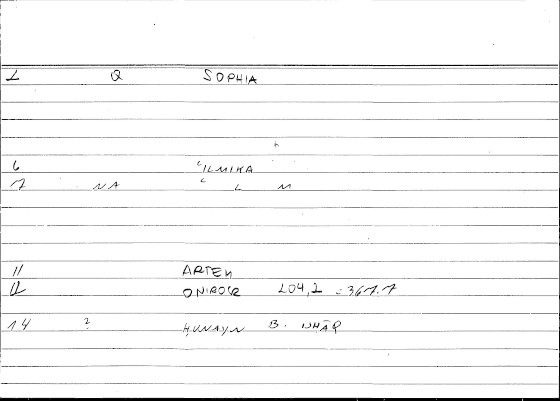 L Q SOPHIA
6 ʿILMIKA
7 NA ʿ L M
11 ARTEM
12 ONIROCR 204,2 = 367.7
14 ? ḤUNAYN B. ISḤĀQ